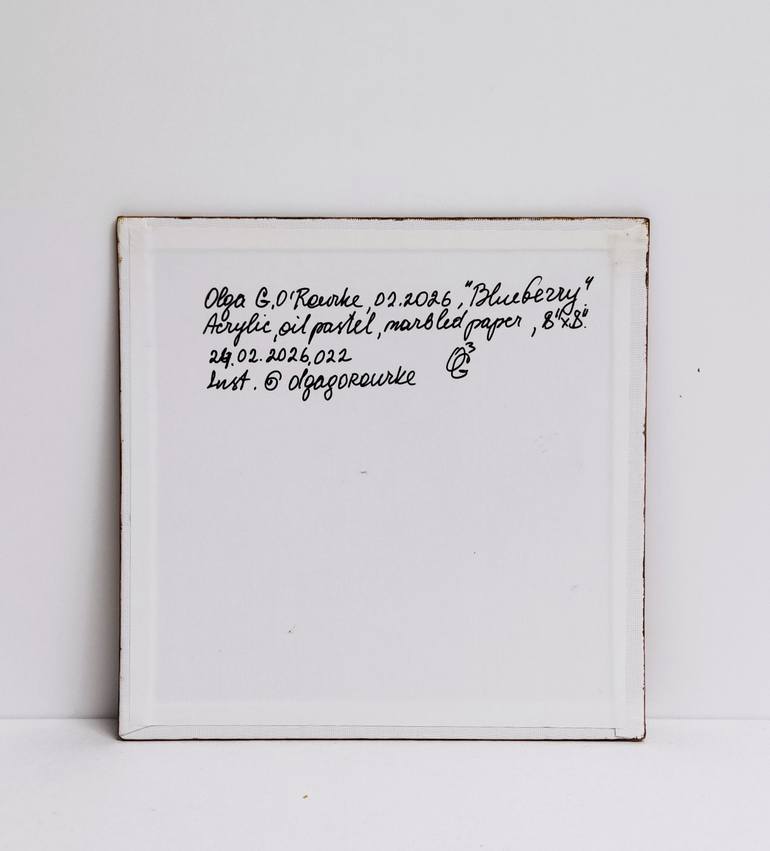 Olga G.O'Rourke, 02.2026, "Blueberry".
Acrylic, oil pastel, marbled paper, 8"x8".
24.02.2026, 022
Inst. @ olgagorourke